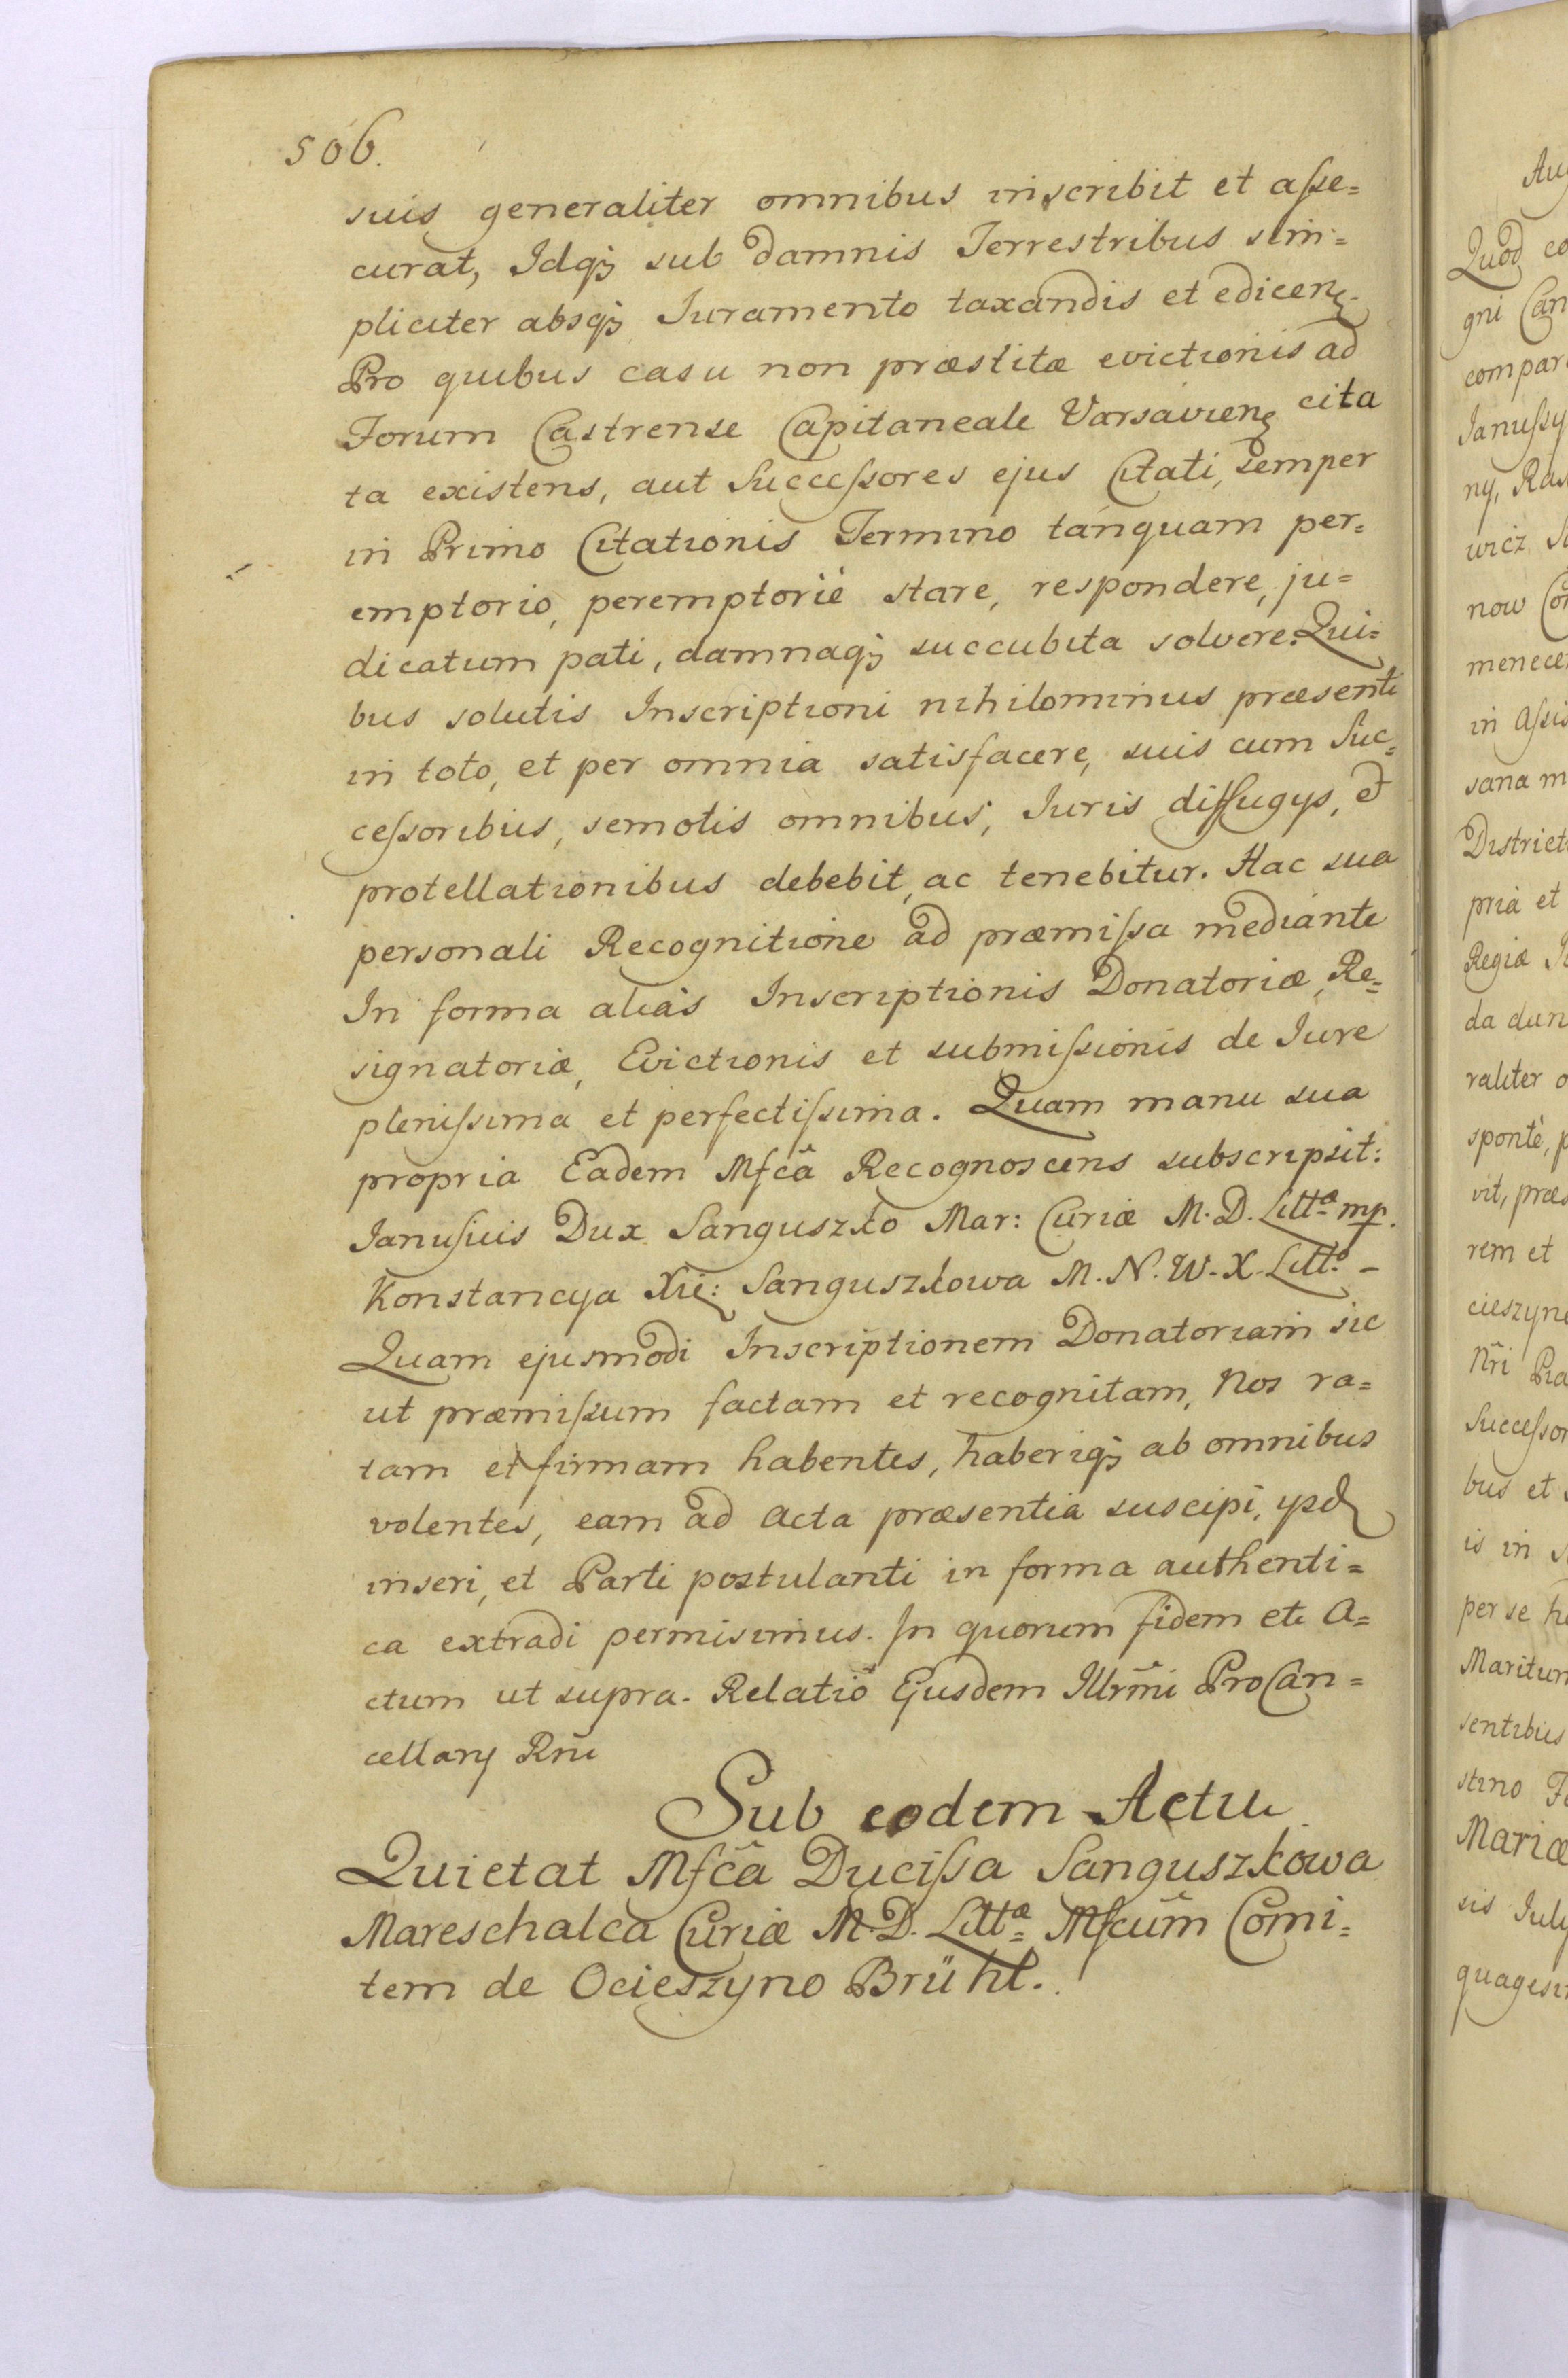 506.
suis generaliter omnibus inscribit et aſse=
curat, Idqꝫ sub damnis Terrestribus sim=
pliciter absqꝫ Iuramento taxandis et edicen
Pro quibus casu non præstitæ evictionis ad
Forum Castrense Capitaneale Varsavien cita
ta existens, aut Succeſsores ejus Citati, semper
in Primo Citationis Termino tanquam per=
emptorio, peremptorie stare, respondere, ju=
dicatum pati, damnaqꝫ succubita solvere. Qui=
bus solutis Inscriptioni nihilominus præsenti
in toto, et per omnia satisfacere, suis cum Suc=
ceſsoribus, semotis omnibus, Iuris diffugys, et
protellationibus debebit, ac tenebitur. Hac sua
personali Recognitione ad præmiſsa mediante
In forma aliàs Inscriptionis Donatoriæ, Re=
signatoriæ, Evictionis et submiſsionis de Iure
pleniſsima et perfectiſsima. Quam manu sua
propria Eadem Mfcã Recognoscens subscripsit:
Ianuſius Dux Sanguszko Mar: Curiæ M. D. Littæ mp.
Konstancya Xię: Sanguszkowa M. N. W. X. Litto –
Quam ejusmodi Inscriptionem Donatoriam sic
ut præmiſsum factam et recognitam, Nos ra=
tam et firmam habentes, haberiqꝫ ab omnibus
volentes, eam ad Acta præsentia suscipi, ysd
inseri, et Parti postulanti in forma authenti=
ca extradi permisimus. In quorum fidem etc A=
ctum ut supra. Relatiõ Ejusdem Illrm̃i ProCan=
cellary Rñi
Sub eodem Actu
Quietat Mfcã Duciſsa Sanguszkowa
Mareschalca Curiæ M. D. Littæ Mfcum̃ Comi=
tem de Ocieszyno Brühl.
Quod co
gni Can
compar
Ianuſsy
ny, Ras
wicz
now
menece
in Aſsis
sana m
District
pria et
Regiæ
da dun
raliter o
spontè, p
vit, præs
rem et
cieszyn
Nri̋ Pra
Succeſsor
bus et
is in
per se h
Maritum
sentibus
stino
Mariæ
sis July
quagesi